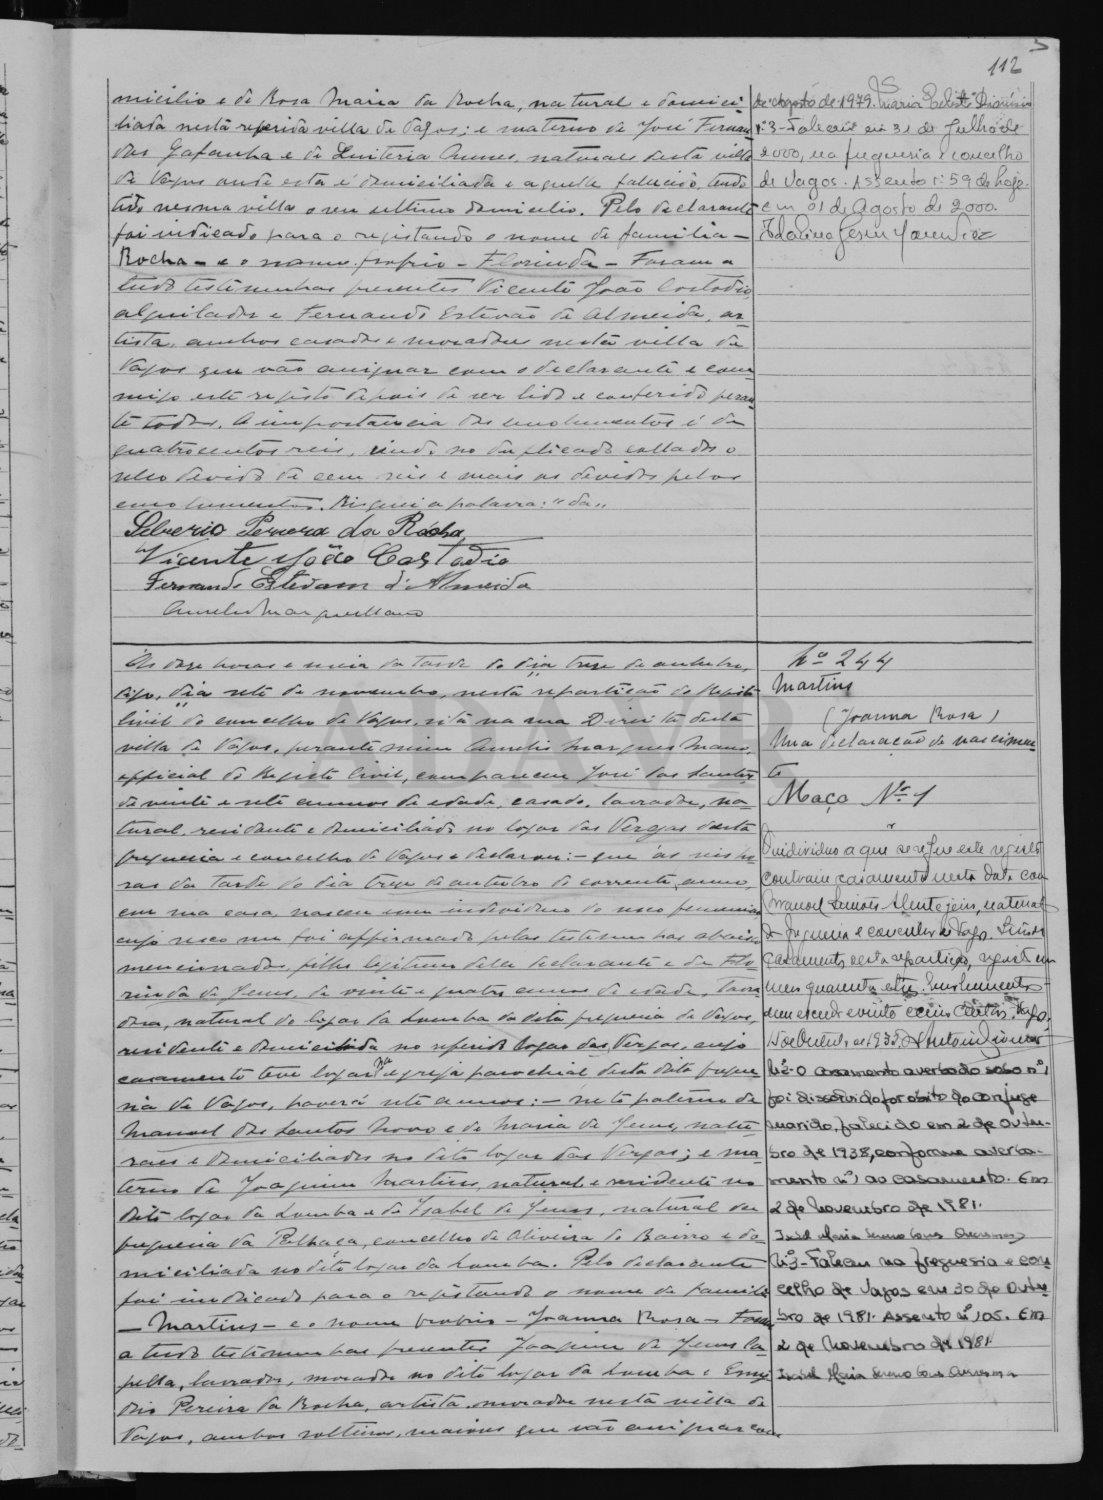 112
micilio e de Rosa Maria da Rocha, natural e domici-
liada nesta referida villa de Vagos; e materno de José Fernan-
des Gafanha e de Quiteria Nunes, naturaes desta villa
de Vagos onde esta é domiciliada e aquelle falecido, tendo
tido nesma villa o seu ultimo domicilio. Pelo declarante
foi indicado para o registando o nome de familia –
Rocha – e o nome proprio – Florinda – Foram a
tudo testimunhas presentes Vicente João Costodio,
alquilador e Fernando Estevão de Almeida, ar-
tista, ambos casados e moradores nesta villa de
Vagos que vão assignar com o declarante e com-
migo este registo depois de ser lido e conferido peran-
te todos. A importancia dos emolumentos é de
quatrocentos reis, indo no duplicado collado o
sello devido de cem reis e mais os devidos pelos
emolumentos. Risquei a palavra: "da"
Silverio Pereira da Rocha
Vicente João Costodio
Fernando Estevam d'Almeida
Aurelio Marques Mano
de Agosto de 1979. Maria Celeste Dionísio
nº 3 - Faleceu em 31 de Julho de
2000, na freguesia e concelho
de Vagos. Assento nº 59 de hoje.
em 01 de Agosto de 2000.
Às doze horas e meia da tarde do dia treze de outubro,
digo, dia sete de novembro, nesta repartição do Registo
Civil do concelho de Vagos, sita na rua Direita desta
villa de Vagos, perante mim Aurelio Marques Mano,
official do Registo Civil, compareceu José dos Santos,
de vinte e sete annos de edade, casado, lavrador, na-
tural, residente e domiciliado no logar das Vergas desta
freguesia e concelho de Vagos e declarou: – que ás seis ho-
ras da tarde do dia treze de outubro do corrente anno,
em sua casa, nasceu um individuo do sexo feminino
cujo sexo me foi affirmado pelas testimunhas abaixo
mencionadas, filho legitimo delle declarante e de Flo-
rinda de Jesus, de vinte e quatro annos de edade, lavra-
dora, natural do logar da Lomba da dita freguesia de Vagos,
residente e domiciliada no referido logar das Vergas, cujo
casamento teve logar na egreja parochial desta dita fregue-
sia de Vagos, haverá sete annos: – neto paterno de
Manuel dos Santos Novo e de Maria de Jesus, natu-
raes e domiciliados no dito logar das Vergas; e ma-
terno de Joaquim Martins, natural e residente no
dito logar da Lomba e de Isabel de Jesus, natural da
freguesia da Palhaça, concelho de Oliveira do Bairro e do-
miciliada no dito logar da Lomba. Pelo declarante
foi indicado para o registando o nome de familia
– Martins – e o nome proprio – Joanna Rosa – Foram
a tudo testimunhas presentes Joaquim de Jesus Ca-
pella, lavrador, morador no dito logar da Lomba e Emy-
dio Pereira da Rocha, artista, morador nesta villa de
Vagos, ambos solteiros, maiores que vão assignar com
Nº 244
Martins
(Joanna Rosa)
Uma declaração de nascimen-
to
Maço Nº 1
O individuo a que se refere este registo
contraiu casamento nesta data com
Manuel Simões Alentejeiro, natural
da freguesia e concelho de Vagos.
casamento nesta repartição, registo
Nº 2 - O casamento averbado sob o nº 1
foi dissolvido por óbito do conjuge
marido, falecido em 2 de Outu-
bro de 1938, conforme averba-
mento nº 1 ao casamento. Em
2 de Novembro de 1981.
Nº 3 - Faleceu na freguesia e con-
celho de Vagos em 30 de Outu-
bro de 1981. Assento nº 105. Em
2 de Novembro de 1981
ADAVR